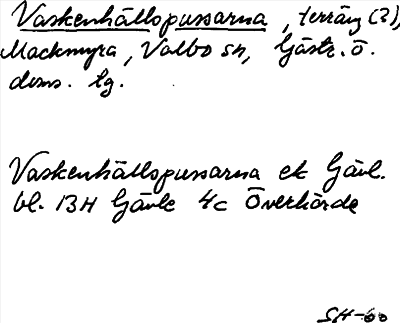 Vaskenhällspussarna, terräng (?),
Mackmyra, Valbo sn, Gästr. ö.
doms. lg.
Vaskenhällspussarna ek Gävl.
bl. 13H Gävle 4c Överhärde
SH-60